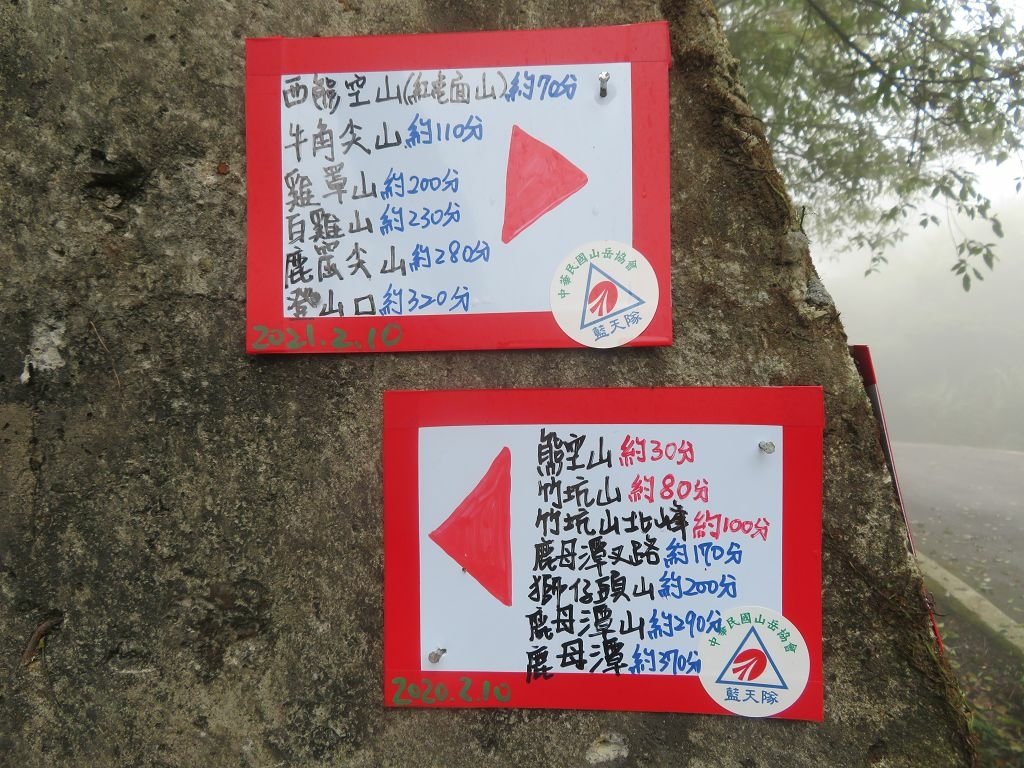 西熊空山(紅龜面山)約70分
牛角尖山約110分
雞罩山約200分
白雞山約230分
鹿窟尖山約280分
登山口約320分
2021.2.10
中華民國山岳協會
藍天隊
熊空山約30分
竹坑山約80分
竹坑山北峰約100分
鹿母潭叉路約170分
獅仔頭山約200分
鹿母潭山約290分
鹿母潭約370分
2020.2.10
中華民國山岳協會
藍天隊